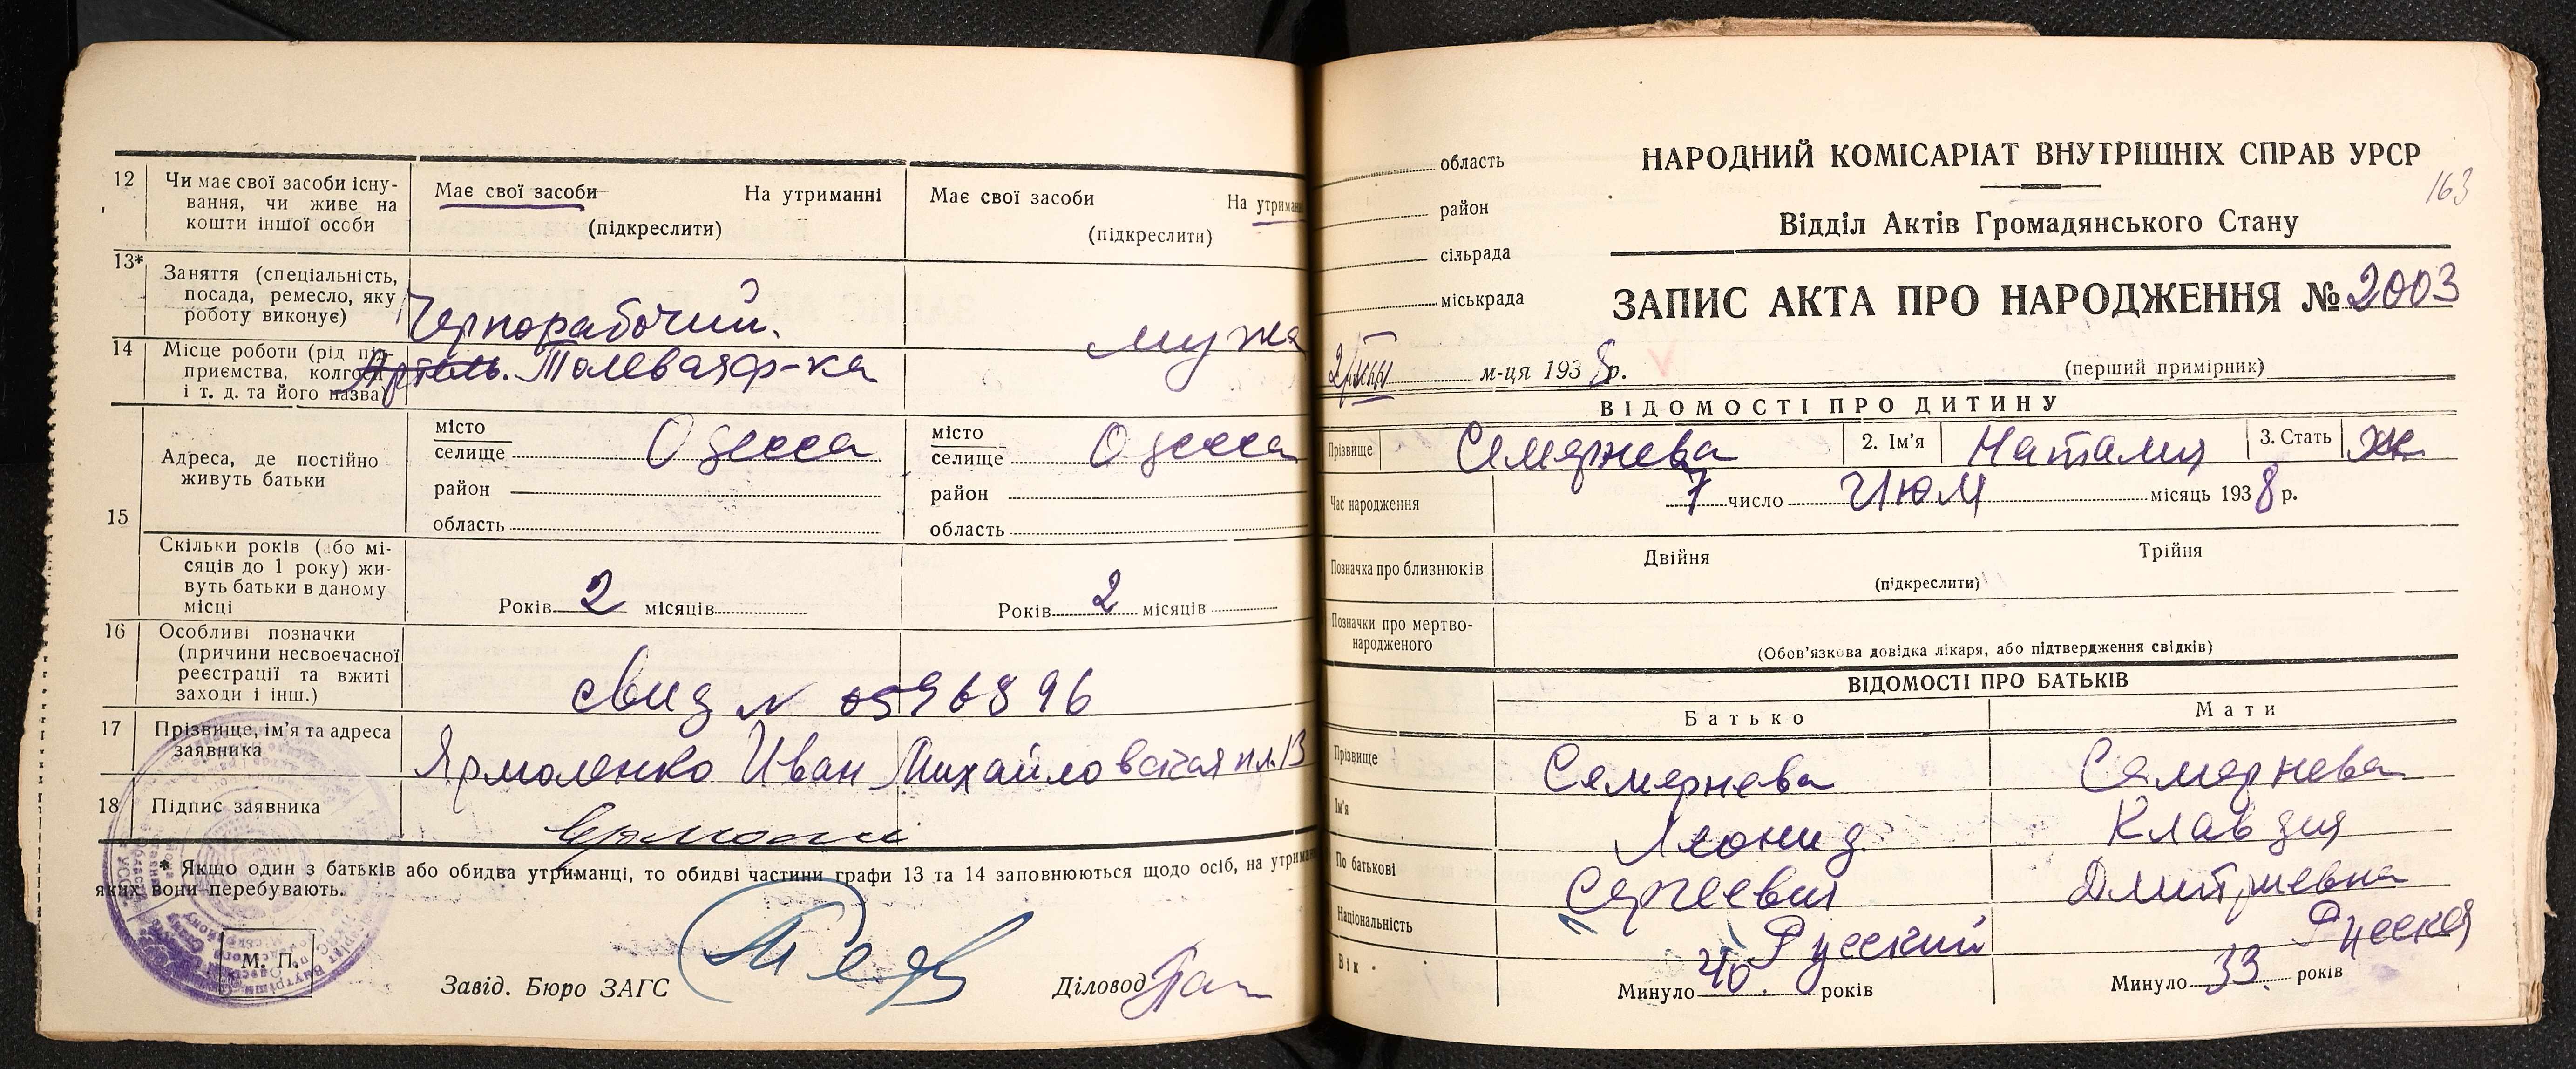 12 Чи має свої засоби існу-
вання, чи живе на
кошти іншої особи
Має свої засоби На утриманні
(підкреслити)
Має свої засоби На утриман
(підкреслити)
13* Заняття (спеціальність,
посада, ремесло, яку
роботу виконує)
Чернорабочий.
мужа
14 Місце роботи (рід під-
приємства, колгосп
і т. д. та його назва
Артель. Толевая ф-ка
15 Адреса, де постійно
живуть батьки
місто
селище Одесса
район
область
місто
селище Одесса
район
область
Скільки років (або мі-
сяців до 1 року) жи-
вуть батьки в даному
місці
Років 2 місяців
Років 2 місяців
16 Особливі позначки
(причини несвоєчасної
реєстрації та вжиті
заходи і інш.)
свид N 0596896
17 Прізвище, ім'я та адреса
заявника
Ярмоленко Иван Михайловская пл. 13
18 Підпис заявника
* Якщо один з батьків або обидва утриманці, то обидві частини графи 13 та 14 заповнюються щодо осіб, на утриман
яких вони перебувають.
М. П.
Завід. Бюро ЗАГС
Діловод
область
район
сільрада
міськрада
м-ця 1938 р.
НАРОДНИЙ КОМІСАРІАТ ВНУТРІШНІХ СПРАВ УРСР
163
Відділ Актів Громадянського Стану
ЗАПИС АКТА ПРО НАРОДЖЕННЯ № 2003
(перший примірник)
ВІДОМОСТІ ПРО ДИТИНУ
Прізвище Семернева 2. Ім'я Наталия 3. Стать ж
Час народження 7 число Июл місяць 1938 р.
Позначка про близнюків Двійня Трійня
(підкреслити)
Позначки про мертво-
народженого
(Обов'язкова довідка лікаря, або підтвердження свідків)
ВІДОМОСТІ ПРО БАТЬКІВ
Батько Мати
Прізвище Семернева Семернева
Ім'я Леонид Клавдия
По батькові Сергеевич Дмитриевна
Національність Русский Русская
Вік Минуло 40. років Минуло 33. років